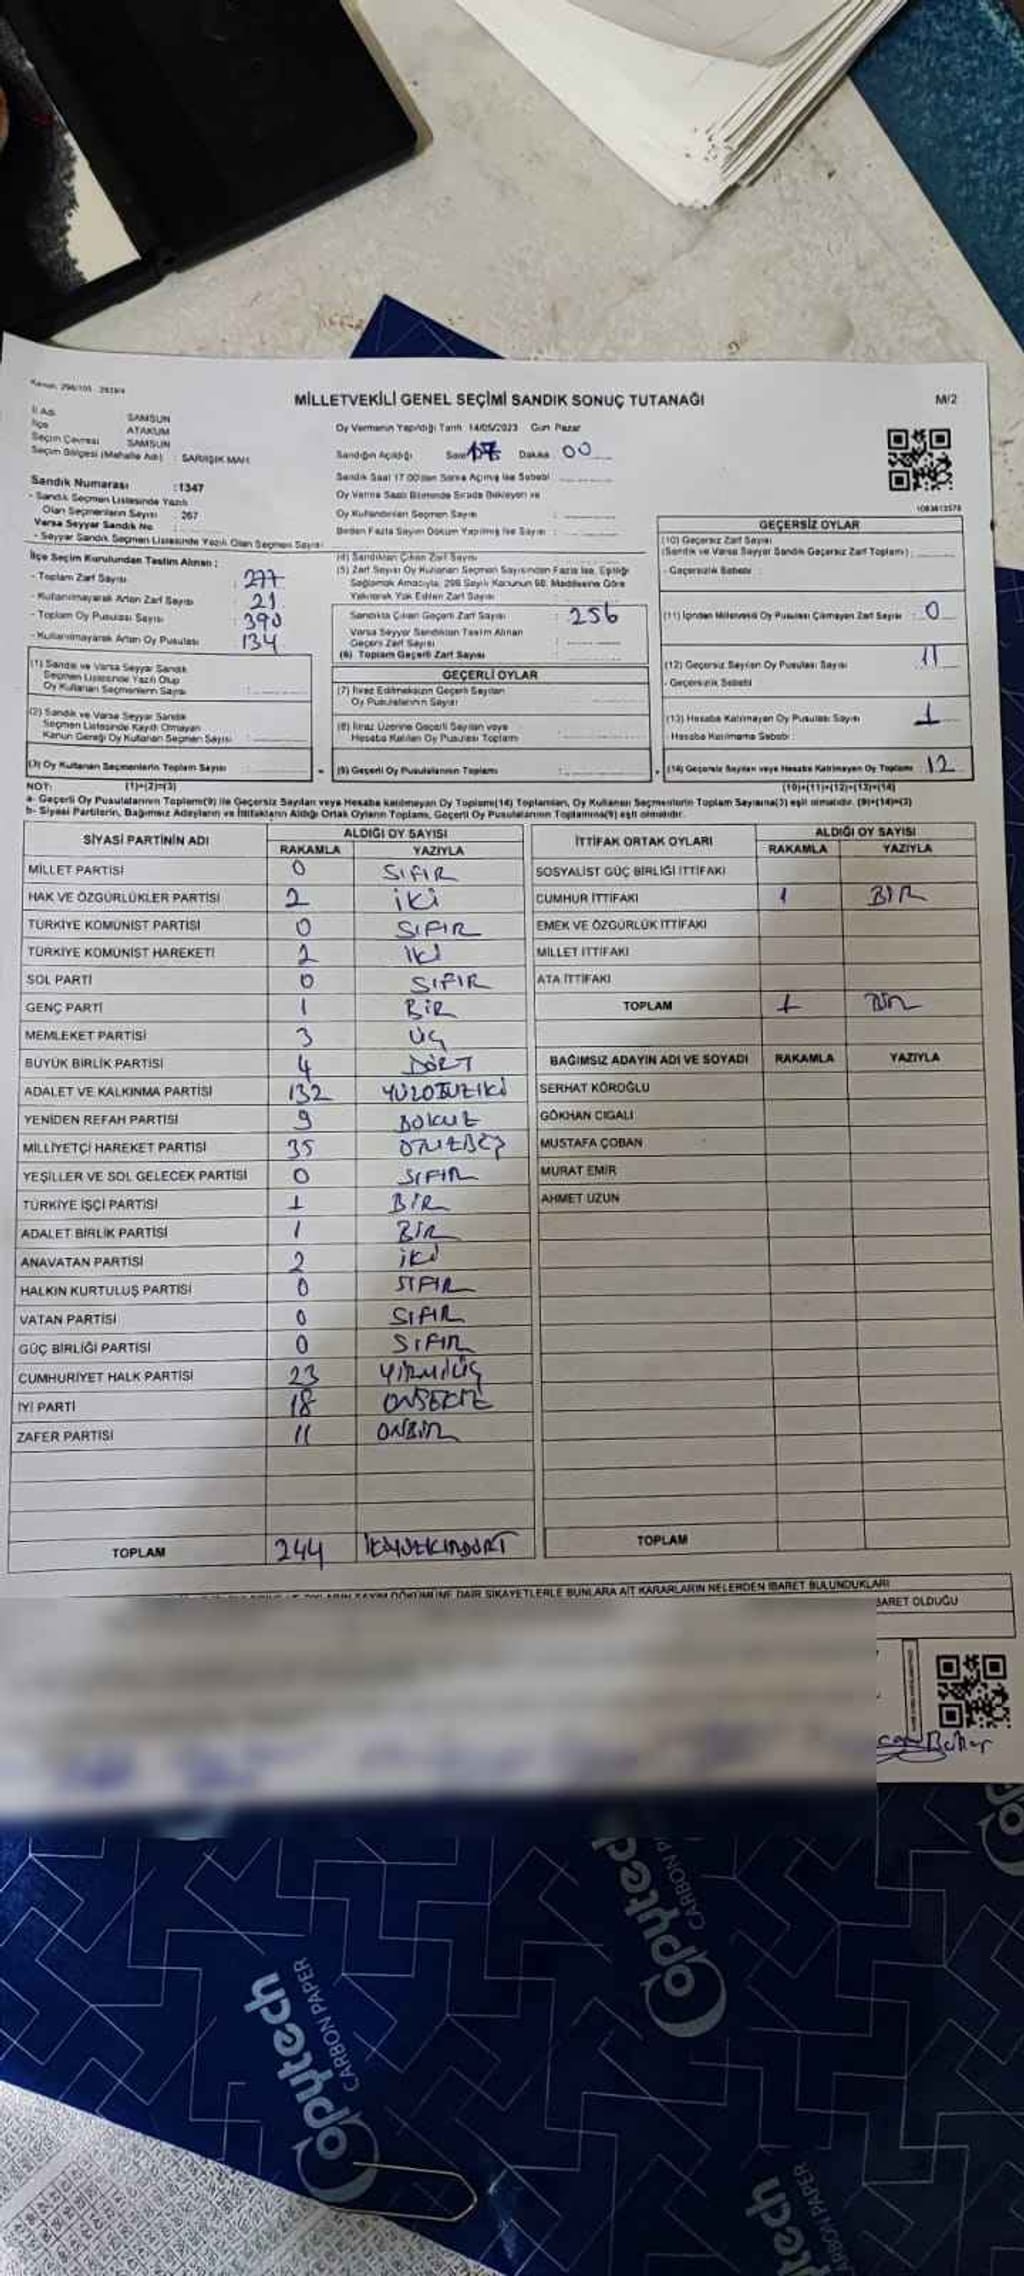 MİLLETVEKİLİ GENEL SEÇİMİ SANDIK SONUÇ TUTANAĞI
M/2
İl Adı SAMSUN
İlçe ATAKUM
Seçim Çevresi SAMSUN
Seçim Bölgesi (Mahalle Adı) : SARIIŞIK MAH.
Oy Vermenin Yapıldığı Tarih 14/05/2023 Gün Pazar
Sandığın Açıldığı Saat 17 Dakika 00
Sandık Saat 17.00'den Sonra Açılmış İse Sebebi
Oy Verme Saati Bitiminde Sırada Bekleyen ve
Oy Kullandırılan Seçmen Sayısı
Birden Fazla Sayım Döküm Yapılmış İse Sayısı :
Sandık Numarası :1347
- Sandık Seçmen Listesinde Yazılı
Olan Seçmenlerin Sayısı 267
Varsa Seyyar Sandık No
- Seyyar Sandık Seçmen Listesinde Yazılı Olan Seçmen Sayısı
İlçe Seçim Kurulundan Teslim Alınan :
- Toplam Zarf Sayısı : 277
- Kullanılmayarak Artan Zarf Sayısı : 21
- Toplam Oy Pusulası Sayısı : 390
- Kullanılmayarak Artan Oy Pusulası : 134
(1) Sandık ve Varsa Seyyar Sandık
Seçmen Listesinde Yazılı Olup
Oy Kullanan Seçmenlerin Sayısı
(2) Sandık ve Varsa Seyyar Sandık
Seçmen Listesinde Kayıtlı Olmayan
Kanun Gereği Oy Kullanan Seçmen Sayısı
(3) Oy Kullanan Seçmenlerin Toplam Sayısı
(4) Sandıktan Çıkan Zarf Sayısı
(5) Zarf Sayısı Oy Kullanan Seçmen Sayısından Fazla İse, Eşitliği
Sağlamak Amacıyla, 298 Sayılı Kanunun 98. Maddesine Göre
Yakılarak Yok Edilen Zarf Sayısı
Sandıkta Çıkan Geçerli Zarf Sayısı : 256
Varsa Seyyar Sandıktan Teslim Alınan
Geçerli Zarf Sayısı
(6) Toplam Geçerli Zarf Sayısı
GEÇERLİ OYLAR
(7) İtiraz Edilmeksizin Geçerli Sayılan
Oy Pusulalarının Sayısı
(8) İtiraz Üzerine Geçerli Sayılan veya
Hesaba Katılan Oy Pusulası Toplamı
(9) Geçerli Oy Pusulalarının Toplamı
GEÇERSİZ OYLAR
(10) Geçersiz Zarf Sayısı
(Sandık ve Varsa Seyyar Sandık Geçersiz Zarf Toplamı) :
- Geçersizlik Sebebi :
(11) İçinden Milletvekili Oy Pusulası Çıkmayan Zarf Sayısı : 0
(12) Geçersiz Sayılan Oy Pusulası Sayısı 11
- Geçersizlik Sebebi
(13) Hesaba Katılmayan Oy Pusulası Sayısı 1
Hesaba Katılmama Sebebi :
(14) Geçersiz Sayılan veya Hesaba Katılmayan Oy Toplamı 12
NOT: (1)+(2)=(3) (10)+(11)+(12)+(13)=(14)
a- Geçerli Oy Pusulalarının Toplamı(9) ile Geçersiz Sayılan veya Hesaba katılmayan Oy Toplamı(14) Toplamları, Oy Kullanan Seçmenlerin Toplam Sayısına(3) eşit olmalıdır. (9)+(14)=(3)
b- Siyasi Partilerin, Bağımsız Adayların ve İttifakların Aldığı Ortak Oyların Toplamı, Geçerli Oy Pusulalarının Toplamına(9) eşit olmalıdır.
SİYASİ PARTİNİN ADI ALDIĞI OY SAYISI
RAKAMLA YAZIYLA
MİLLET PARTİSİ 0 SIFIR
HAK VE ÖZGÜRLÜKLER PARTİSİ 2 İKİ
TÜRKİYE KOMÜNİST PARTİSİ 0 SIFIR
TÜRKİYE KOMÜNİST HAREKETİ 2 İKİ
SOL PARTİ 0 SIFIR
GENÇ PARTİ 1 BİR
MEMLEKET PARTİSİ 3 ÜÇ
BÜYÜK BİRLİK PARTİSİ 4 DÖRT
ADALET VE KALKINMA PARTİSİ 132 YÜZOTUZİKİ
YENİDEN REFAH PARTİSİ 9 DOKUZ
MİLLİYETÇİ HAREKET PARTİSİ 35 OTUZBEŞ
YEŞİLLER VE SOL GELECEK PARTİSİ 0 SIFIR
TÜRKİYE İŞÇİ PARTİSİ 1 BİR
ADALET BİRLİK PARTİSİ 1 BİR
ANAVATAN PARTİSİ 2 İKİ
HALKIN KURTULUŞ PARTİSİ 0 SIFIR
VATAN PARTİSİ 0 SIFIR
GÜÇ BİRLİĞİ PARTİSİ 0 SIFIR
CUMHURİYET HALK PARTİSİ 23 YİRMİÜÇ
İYİ PARTİ 18 ONSEKİZ
ZAFER PARTİSİ 11 ONBİR
TOPLAM 244 İKİYÜZKIRKDÖRT
İTTİFAK ORTAK OYLARI ALDIĞI OY SAYISI
RAKAMLA YAZIYLA
SOSYALİST GÜÇ BİRLİĞİ İTTİFAKI
CUMHUR İTTİFAKI 1 BİR
EMEK VE ÖZGÜRLÜK İTTİFAKI
MİLLET İTTİFAKI
ATA İTTİFAKI
TOPLAM 1 BİR
BAĞIMSIZ ADAYIN ADI VE SOYADI RAKAMLA YAZIYLA
SERHAT KÖROĞLU
GÖKHAN CIGALI
MUSTAFA ÇOBAN
MURAT EMİR
AHMET UZUN
TOPLAM
SAYIM DÖKÜMÜNE DAİR ŞİKAYETLERLE BUNLARA AİT KARARLARIN NELERDEN İBARET BULUNDUKLARI
BARET OLDUĞU
Copytech
CARBON PAPER
Copytech
CARBON PAPER
ytech
CARBON PAPER